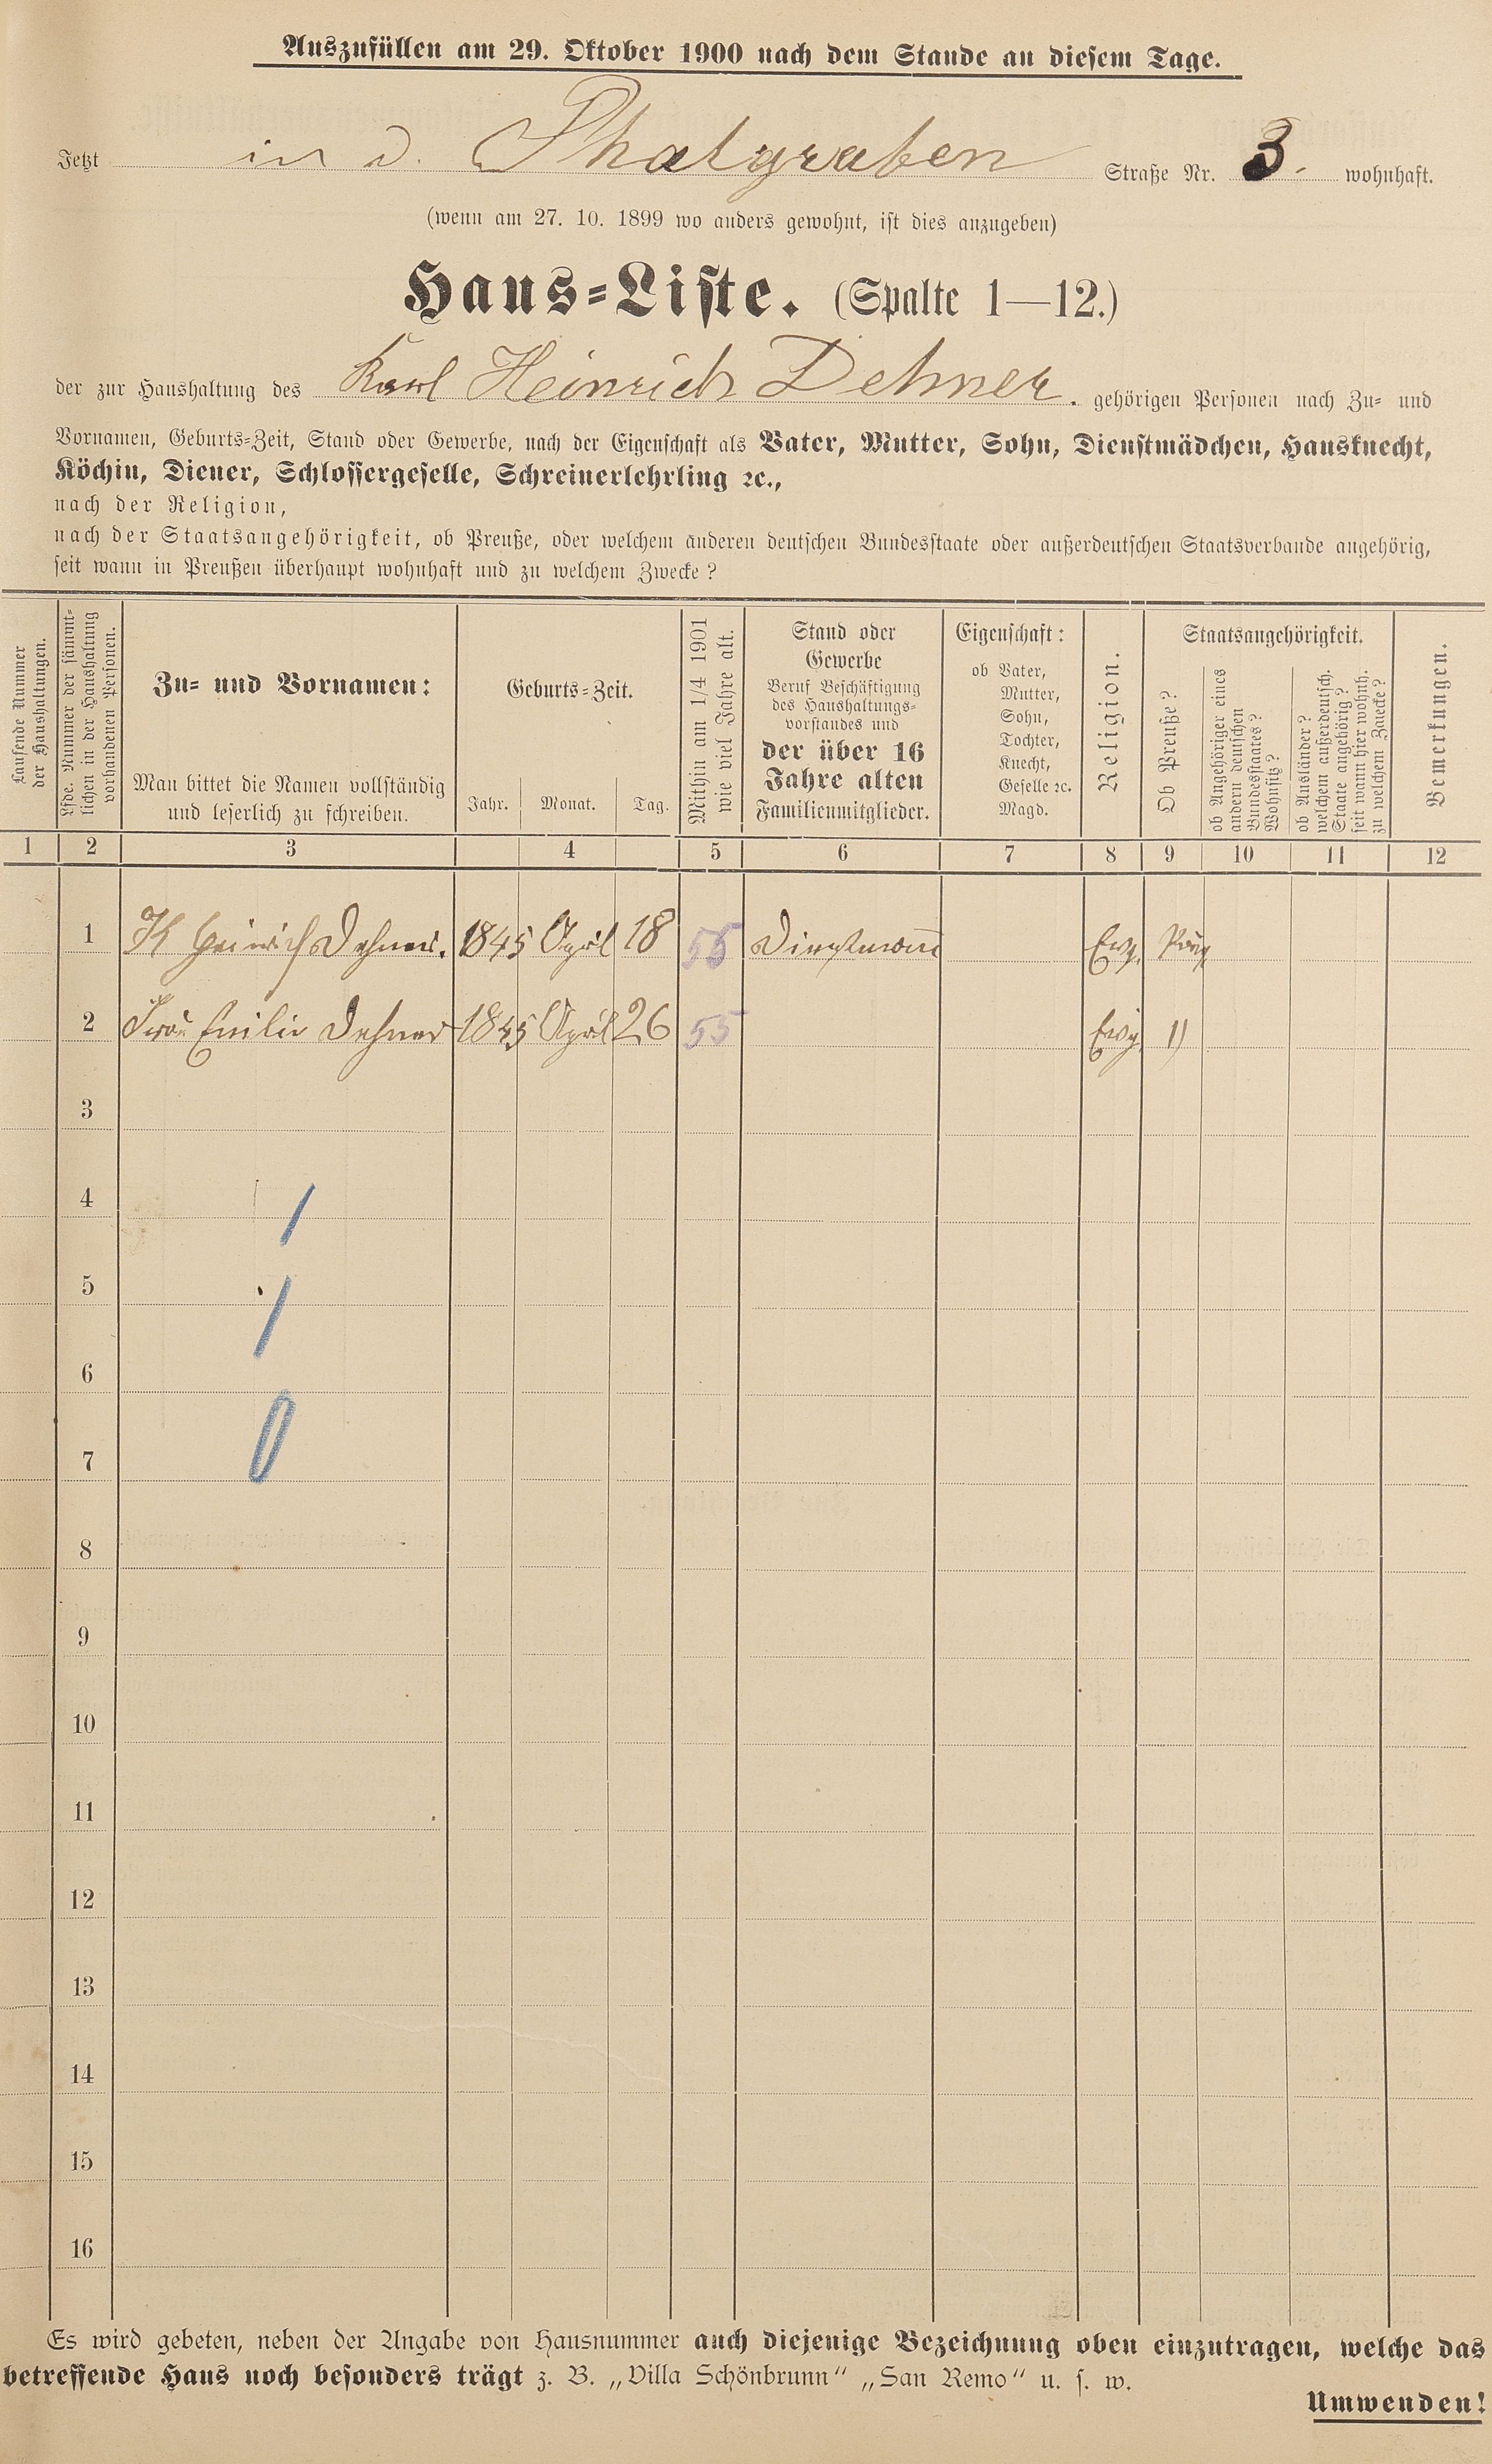 Auszufüllen am 29. Oktober 1900 nach dem Stande an diesem Tage.
Jetzt in d. Thalgraben Straße Nr. 3. wohnhaft.
(wenn am 27. 10. 1899 wo anders gewohnt, ist dies anzugeben)
Haus=Liste. (Spalte 1—12.)
der zur Haushaltung des Karl Heinrich Dehner. gehörigen Personen nach Zu= und
Vornamen, Geburts=Zeit, Stand oder Gewerbe, nach der Eigenschaft als Vater, Mutter, Sohn, Dienstmädchen, Hausknecht,
Köchin, Diener, Schlossergeselle, Schreinerlehrling ꝛc.,
nach der Religion,
nach der Staatsangehörigkeit, ob Preuße, oder welchem anderen deutschen Bundesstaate oder außerdeutschen Staatsverbande angehörig,
seit wann in Preußen überhaupt wohnhaft und zu welchem Zwecke?
Laufende Nummer
der Haushaltungen.
Lfde. Nummer der sämmt=
lichen in der Haushaltung
vorhandenen Personen.
Zu= und Vornamen:
Man bittet die Namen vollständig
und leserlich zu schreiben.
Geburts=Zeit.
Jahr. Monat. Tag.
Mithin am 1/4 1901
wie viel Jahre alt.
Stand oder
Gewerbe
Beruf Beschäftigung
des Haushaltungs=
vorstandes und
der über 16
Jahre alten
Familienmitglieder.
Eigenschaft:
ob Vater,
Mutter,
Sohn,
Tochter,
Knecht,
Geselle ꝛc.
Magd.
Religion.
Staatsangehörigkeit.
Ob Preuße?
ob Angehöriger eines
andern deutschen
Bundesstaates?
Wohnsitz?
ob Ausländer?
welchem außerdeutsch.
Staate angehörig?
seit wann hier wohnh.
zu welchem Zwecke?
Bemerkungen.
1 2 3 4 5 6 7 8 9 10 11 12
1 K Heinrich Dehner. 1845 April 18 55 Dienstmann Evg.
2 Frau Emilie Dehner 1845 April 26 55 Evg. "
3
4
5
6
7
8
9
10
11
12
13
14
15
16
Es wird gebeten, neben der Angabe von Hausnummer auch diejenige Bezeichnung oben einzutragen, welche das
betreffende Haus noch besonders trägt z. B. „Villa Schönbrunn“ „San Remo“ u. s. w.
Umwenden!